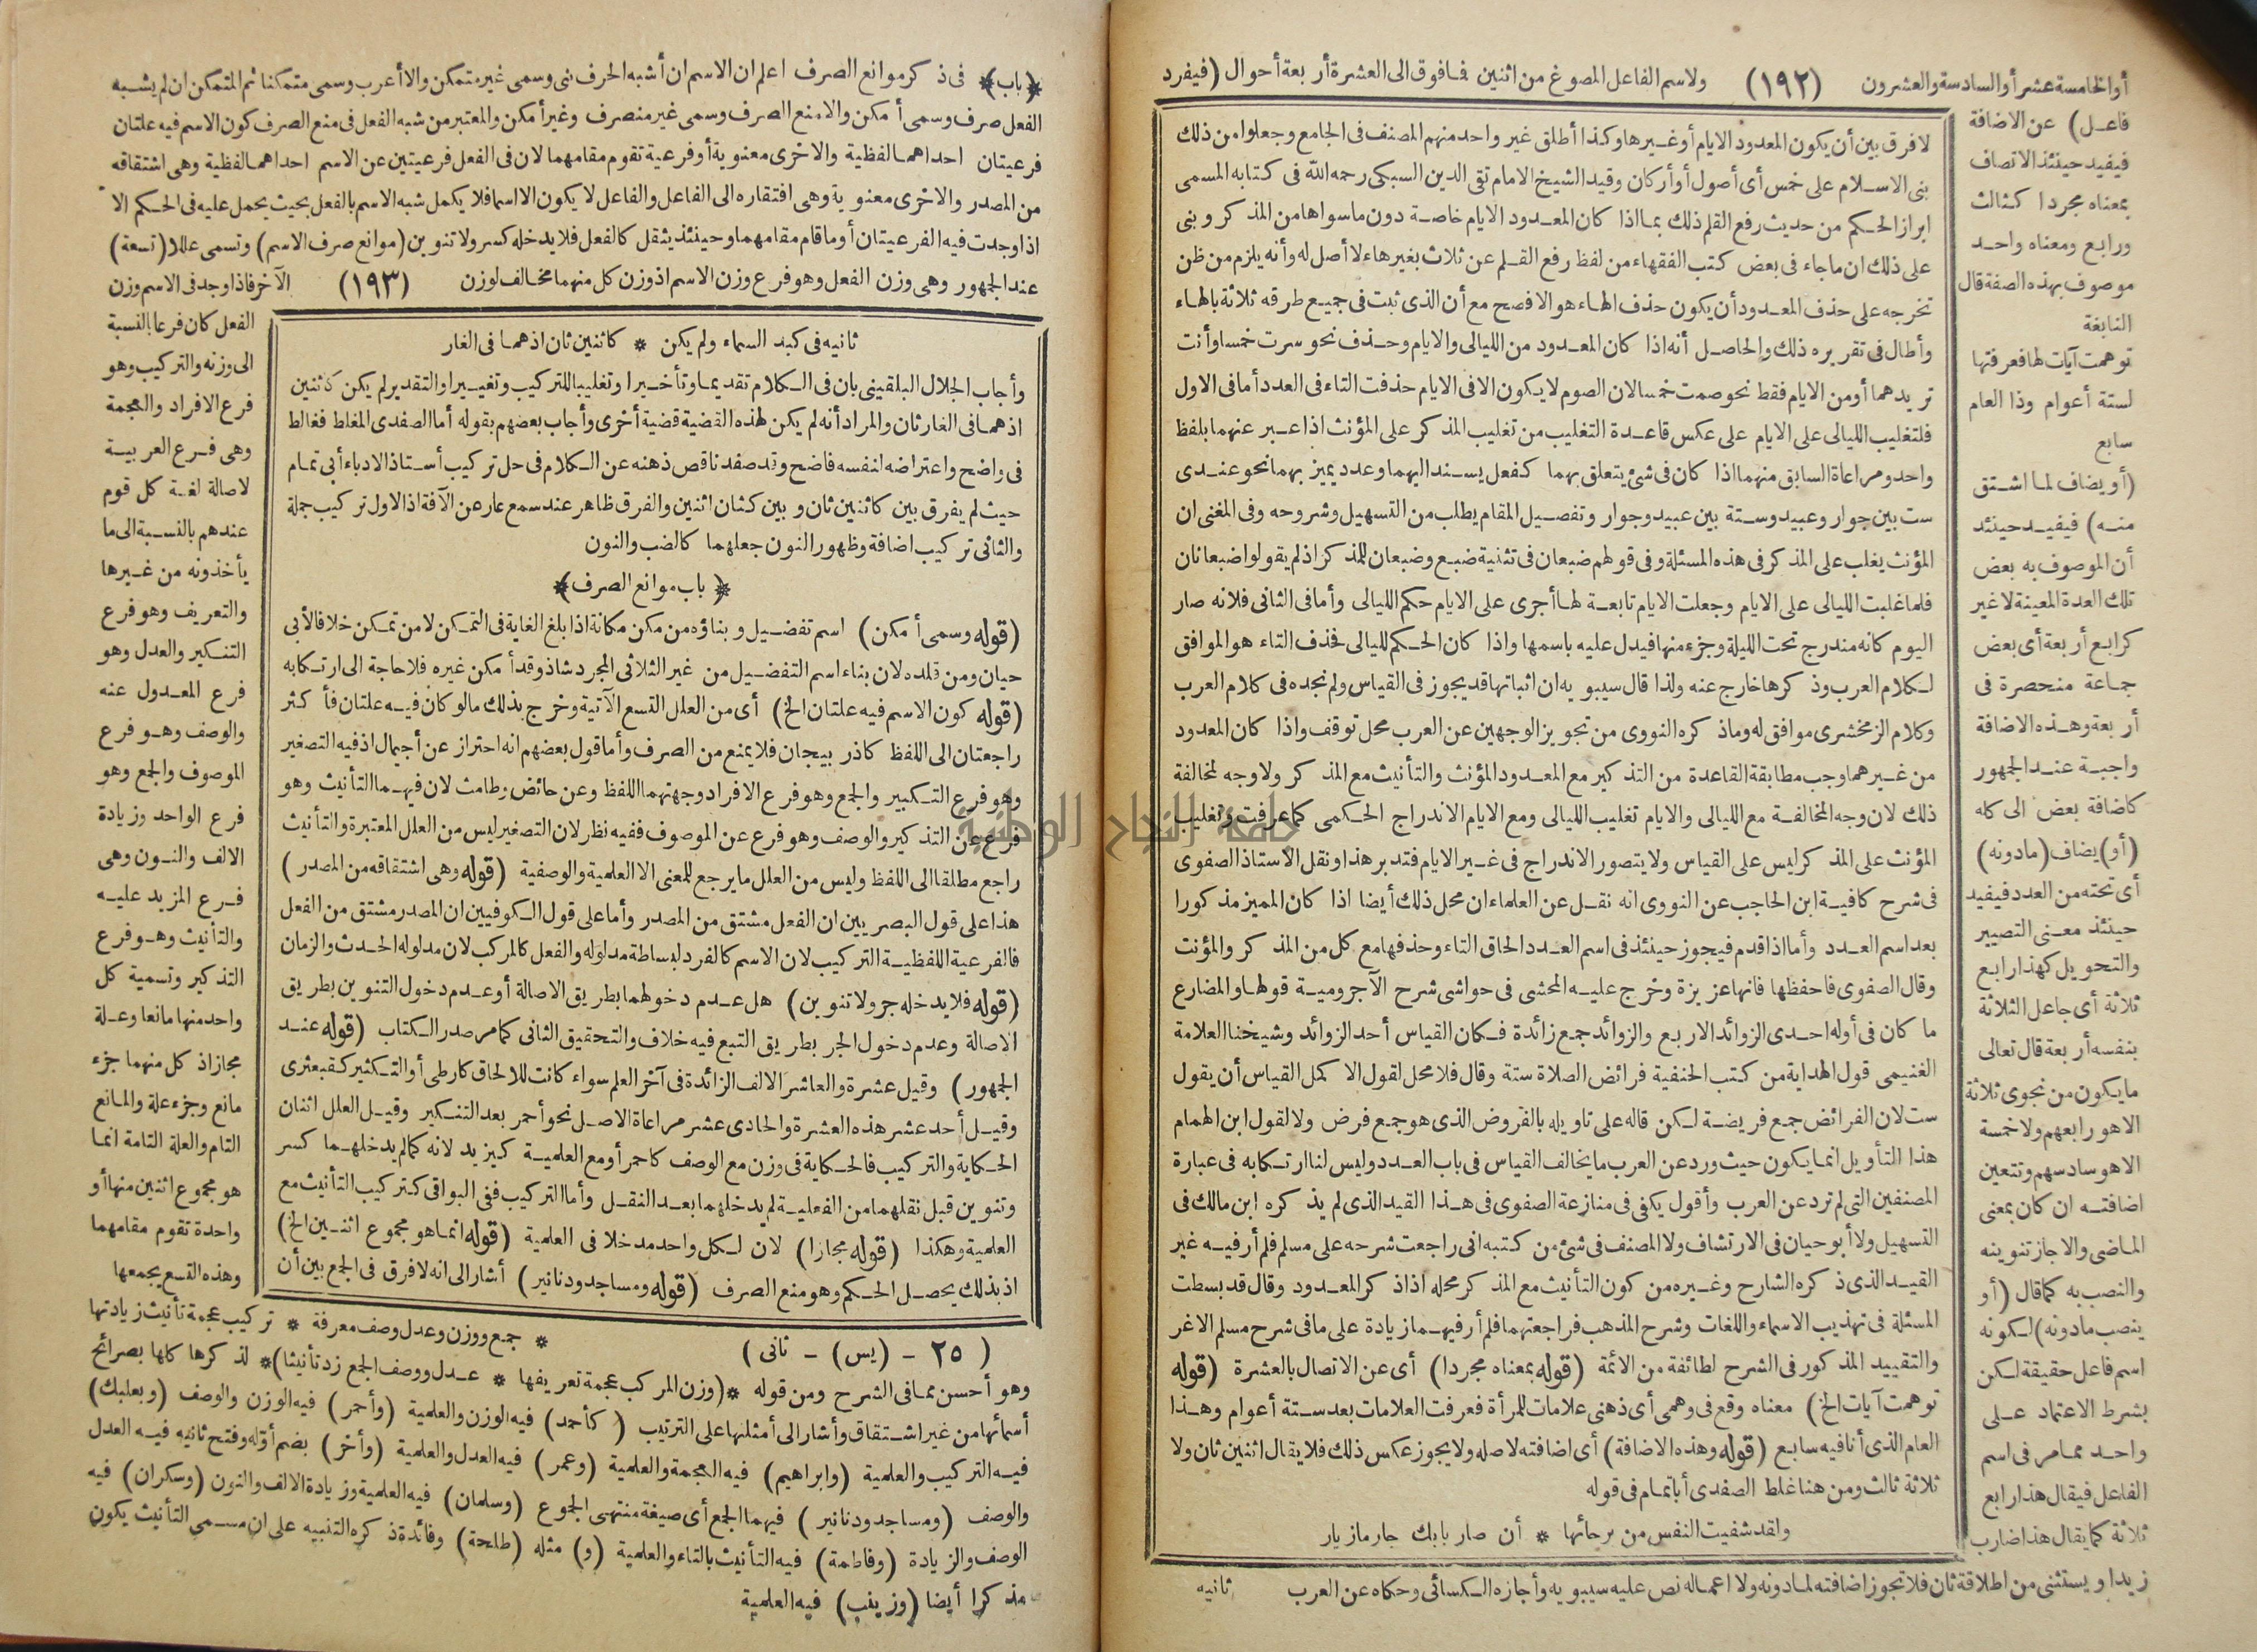 أو الخامسة عشر أو السادسة والعشرون (١٩٢) ولاسم الفاعل المصوغ من اثنين فما فوق الى العشرة أربعة أحوال (فيفرد
فاعل) عن الاضافة
فيفيد حينئذ الاتصاف
بمعناه مجردا كثالث
ورابع ومعناه واحد
موصوف بهذه الصفة قال
النابغة
توهمت آيات لها فعرفتها
لستة أعوام وذا العام
سابع
(أو يضاف لما اشتق
منه) فيفيد حينئذ
أن الموصوف به بعض
تلك العدة المعينة لا غير
كرابع أربعة أى بعض
جماعة منحصرة فى
أربعة وهذه الاضافة
واجبة عند الجمهور
كاضافة بعض الى كله
(أو) يضاف (مادونه)
أى تحته من العدد فيفيد
حينئذ معنى التصيير
والتحويل كهذا رابع
ثلاثة أى جاعل الثلاثة
بنفسه أربعة قال تعالى
ما يكون من نجوى ثلاثة
الا هو رابعهم ولا خمسة
الا هو سادسهم وتتعين
اضافته ان كان بمعنى
الماضى والا جاز تنوينه
والنصب به كما قال (أو
ينصب مادونه) لكونه
اسم فاعل حقيقة لكن
بشرط الاعتماد على
واحد مما مر فى اسم
الفاعل فيقال هذا رابع
ثلاثة كما يقال هذا ضارب
زيدا ويستثنى من اطلاقه ثان فلا تجوز اضافته لما دونه ولا اعماله نص عليه سيبويه وأجازه الكسائى وحكاه عن العرب
لا فرق بين أن يكون المعدود الايام أو غيرها وكذا أطلق غير واحد منهم المصنف فى الجامع وجعلوا من ذلك
بنى الاسلام على خمس أى أصول أو أركان وقيد الشيخ الامام تقى الدين السبكى رحمه الله فى كتابه المسمى
ابراز الحكم من حديث رفع القلم ذلك بما اذا كان المعدود الايام خاصة دون ما سواها من المذكر وبنى
على ذلك ان ما جاء فى بعض كتب الفقهاء من لفظ رفع القلم عن ثلاث بغير هاء لا أصل له وأنه يلزم من ظن
تخرجه على حذف المعدود أن يكون حذف الهاء هو الافصح مع أن الذى ثبت فى جميع طرقه ثلاثة بالهاء
وأطال فى تقريره ذلك والحاصل أنه اذا كان المعدود من الليالى والايام وحذف نحو سرت خمسا وأنت
تريدهما أو من الايام فقط نحو صمت خمسا لان الصوم لا يكون الا فى الايام حذفت التاء فى العدد أما فى الاول
فلتغليب الليالى على الايام على عكس قاعدة التغليب من تغليب المذكر على المؤنث اذا عبر عنهما بلفظ
واحد ومراعاة السابق منهما اذا كان فى شئ يتعلق بهما كفعل يسند اليهما وعدد يميز بهما نحو عندى
ست بين جوار وعبيد وستة بين عبيد وجوار وتفصيل المقام يطلب من التسهيل وشروحه وفى المغنى ان
المؤنث يغلب على المذكر فى هذه المسئلة وفى قولهم ضبعان فى تثنية ضبع وضبعان للمذكر اذ لم يقولوا ضبعانان
فلما غلبت الليالى على الايام وجعلت الايام تابعة لها أجرى على الايام حكم الليالى وأما فى الثانى فلانه صار
اليوم كانه مندرج تحت الليلة وجزء منها فيدل عليه باسمها واذا كان الحكم لليالى فحذف التاء هو الموافق
لكلام العرب وذكرها خارج عنه ولذا قال سيبويه ان اثباتها قد يجوز فى القياس ولم نجده فى كلام العرب
وكلام الزمخشرى موافق له وما ذكره النووى من تجويز الوجهين عن العرب محل توقف واذا كان المعدود
من غيرهما وجب مطابقة القاعدة من التذكير مع المعدود المؤنث والتأنيث مع المذكر ولا وجه لمخالفة
ذلك لان وجه المخالفة مع الليالى والايام تغليب الليالى ومع الايام الاندراج الحكمى كما عرفت وتغليب
المؤنث على المذكر ليس على القياس ولا يتصور الاندراج فى غير الايام فتدبر هذا ونقل الاستاذ الصفوى
فى شرح كافية ابن الحاجب عن النووى انه نقل عن العلماء ان محل ذلك أيضا اذا كان المميز مذكورا
بعد اسم العدد وأما اذا قدم فيجوز حينئذ فى اسم العدد الحاق التاء وحذفها مع كل من المذكر والمؤنث
وقال الصفوى فاحفظها فانها عزيزة وخرج عليه المحشى فى حواشى شرح الآجرومية قولها والمضارع
ما كان فى أوله احدى الزوائد الاربع والزوائد جمع زائدة فكان القياس أحد الزوائد وشيخنا العلامة
الغنيمى قول الهداية من كتب الحنفية فرائض الصلاة ستة وقال فلا محل لقول الاكمل القياس أن يقول
ست لان الفرائض جمع فريضة لكن قاله على تاويله بالفروض الذى هو جمع فرض ولا لقول ابن الهمام
هذا التأويل انما يكون حيث ورد عن العرب ما يخالف القياس فى باب العدد وليس لنا ارتكابه فى عبارة
المصنفين التى لم ترد عن العرب وأقول يكفى فى منازعة الصفوى فى هذا القيد الذى لم يذكره ابن مالك فى
التسهيل ولا أبو حيان فى الارتشاف ولا المصنف فى شئ من كتبه انى راجعت شرحه على مسلم فلم أر فيه غير
القيد الذى ذكره الشارح وغيره من كون التأنيث مع المذكر محله اذا ذكر المعدود وقال قد بسطت
المسئلة فى تهذيب الاسماء واللغات وشرح المذهب فراجعتهما فلم أر فيهما زيادة على ما فى شرح مسلم الاغر
والتقييد المذكور فى الشرح لطائفة من الأئمة (قوله بمعناه مجردا) أى عن الاتصال بالعشرة (قوله
توهمت آيات الخ) معناه وقع فى وهمى أى ذهنى علامات للمرأة فعرفت العلامات بعد ستة أعوام وهذا
العام الذى أنا فيه سابع (قوله وهذه الاضافة) أى اضافته لاصله ولا يجوز عكس ذلك فلا يقال اثنين ثان ولا
ثلاثة ثالث ومن هنا غلط الصفدى أبا تمام فى قوله
ولقد شفيت النفس من برحائها * أن صار بابك جار مازيار
ثانيه
﴿باب﴾ فى ذكر موانع الصرف اعلم ان الاسم ان أشبه الحرف بنى وسمى غير متمكن والا أعرب وسمى متمكنا ثم المتمكن ان لم يشبه
الفعل صرف وسمى أمكن والا منع الصرف وسمى غير منصرف وغير أمكن والمعتبر من شبه الفعل فى منع الصرف كون الاسم فيه علتان
فرعيتان احداهما لفظية والاخرى معنوية أو فرعية تقوم مقامهما لان فى الفعل فرعيتين عن الاسم احداهما لفظية وهى اشتقاقه
من المصدر والاخرى معنوية وهى افتقاره الى الفاعل والفاعل لا يكون الا اسما فلا يكمل شبه الاسم بالفعل بحيث يحمل عليه فى الحكم الا
اذا وجدت فيه الفرعيتان أو ما قام مقامهما وحينئذ يثقل كالفعل فلا يدخله كسر ولا تنوين (موانع صرف الاسم) وتسمى عللا (تسعة)
عند الجمهور وهى وزن الفعل وهو فرع وزن الاسم اذ وزن كل منهما مخالف لوزن (١٩٣) الآخر فاذا وجد فى الاسم وزن
الفعل كان فرعا بالنسبة
الى وزنه والتركيب وهو
فرع الافراد والعجمة
وهى فرع العربية
لاصالة لغة كل قوم
عندهم بالنسبة الى ما
يأخذونه من غيرها
والتعريف وهو فرع
التنكير والعدل وهو
فرع المعدول عنه
والوصف وهو فرع
الموصوف والجمع وهو
فرع الواحد وزيادة
الالف والنون وهى
فرع المزيد عليه
والتأنيث وهو فرع
التذكير وتسمية كل
واحد منها مانعا وعلة
مجازا اذ كل منهما جزء
مانع وجزء علة والمانع
التام والعلة التامة انما
هو مجموع اثنين منها أو
واحدة تقوم مقامهما
وهذه التسع يجمعها
ثانيه فى كبد السماء ولم يكن * كاثنين ثان اذ هما فى الغار
وأجاب الجلال البلقينى بان فى الكلام تقديما وتأخيرا وتغليبا للتركيب وتغييرا والتقدير لم يكن كاثنين
اذ هما فى الغار ثان والمراد أنه لم يكن لهذه القضية قضية أخرى وأجاب بعضهم بقوله أما الصفدى المغلط فغالط
فى واضح واعتراضه لنفسه فاضح وقد صفد ناقص ذهنه عن الكلام فى حل تركيب أستاذ الادباء أبى تمام
حيث لم يفرق بين كاثنين ثان و بين كثان اثنين والفرق ظاهر عند سمع عار عن الآفة اذ الاول تركيب جملة
والثانى تركيب اضافة وظهور النون جعلهما كالضب والنون
﴿باب موانع الصرف﴾
(قوله وسمى أمكن) اسم تفضيل وبناؤه من مكن مكانة اذا بلغ الغاية فى التمكن لا من تمكن خلافا لأبى
حيان ومن قلده لان بناء اسم التفضيل من غير الثلاثى المجرد شاذ وقد أمكن غيره فلا حاجة الى ارتكابه
(قوله كون الاسم فيه علتان الخ) أى من العلل التسع الآتية وخرج بذلك ما لو كان فيه علتان فأكثر
راجعتان الى اللفظ كاذربيجان فلا يمنع من الصرف وأما قول بعضهم انه احتراز عن أجيمال اذ فيه التصغير
وهو فرع التكبير والجمع وهو فرع الافراد وجهتهما اللفظ وعن حائض وطامث لان فيهما التأنيث وهو
فرع عن التذكير والوصف وهو فرع عن الموصوف ففيه نظر لان التصغير ليس من العلل المعتبرة والتأنيث
راجع مطلقا الى اللفظ وليس من العلل ما يرجع للمعنى الا العلمية والوصفية (قوله وهى اشتقاقه من المصدر)
هذا على قول البصريين ان الفعل مشتق من المصدر وأما على قول الكوفيين ان المصدر مشتق من الفعل
فالفرعية اللفظية التركيب لان الاسم كالفرد لبساطة مدلوله والفعل كالمركب لان مدلوله الحدث والزمان
(قوله فلا يدخله جر ولا تنوين) هل عدم دخولهما بطريق الاصالة أو عدم دخول التنوين بطريق
الاصالة وعدم دخول الجر بطريق التبع فيه خلاف والتحقيق الثانى كما مر صدر الكتاب (قوله عند
الجمهور) وقيل عشرة والعاشر الالف الزائدة فى آخر العلم سواء كانت للالحاق كارطى أو التكثير كقبعثرى
وقيل أحد عشر هذه العشرة والحادى عشر مراعاة الاصل نحو أحمر بعد التنكير وقيل العلل اثنان
الحكاية والتركيب فالحكاية فى وزن مع الوصف كاحمر أو مع العلمية كيزيد لانه كما لم يدخلهما كسر
وتنوين قبل نقلهما من الفعلية لم يدخلهما بعد النقل وأما التركيب ففى البواقى كتركيب التأنيث مع
العلمية وهكذا (قوله مجازا) لان لكل واحد مدخلا فى العلمية (قوله انما هو مجموع اثنين الخ)
اذ بذلك يحصل الحكم وهو منع الصرف (قوله ومساجد ودنانير) أشار الى انه لا فرق فى الجمع بين أن
(٢٥ - (يس) - ثانى)
* جمع ووزن وعدل وصف معرفة * تركيب عجمة تأنيث زيادتها
وهو أحسن مما فى الشرح ومن قوله *(وزن المركب عجمة تعريفها * عدل ووصف الجمع زد تأنيثا)* لذكرها كلها بصرائح
أسمائها من غير اشتقاق وأشار الى أمثلتها على الترتيب (كأحمد) فيه الوزن والعلمية (وأحمر) فيه الوزن والوصف (وبعلبك)
فيه التركيب والعلمية (وابراهيم) فيه العجمة والعلمية (وعمر) فيه العدل والعلمية (وأخر) بضم أوله وفتح ثانيه فيه العدل
والوصف (ومساجد ودنانير) فيهما الجمع أى صيغة منتهى الجموع (وسلمان) فيه العلمية وزيادة الالف والنون (وسكران) فيه
الوصف والزيادة (وفاطمة) فيه التأنيث بالتاء والعلمية (و) مثله (طلحة) وفائدة ذكره التنبيه على ان مسمى التأنيث يكون
مذكرا أيضا (وزينب) فيه العلمية